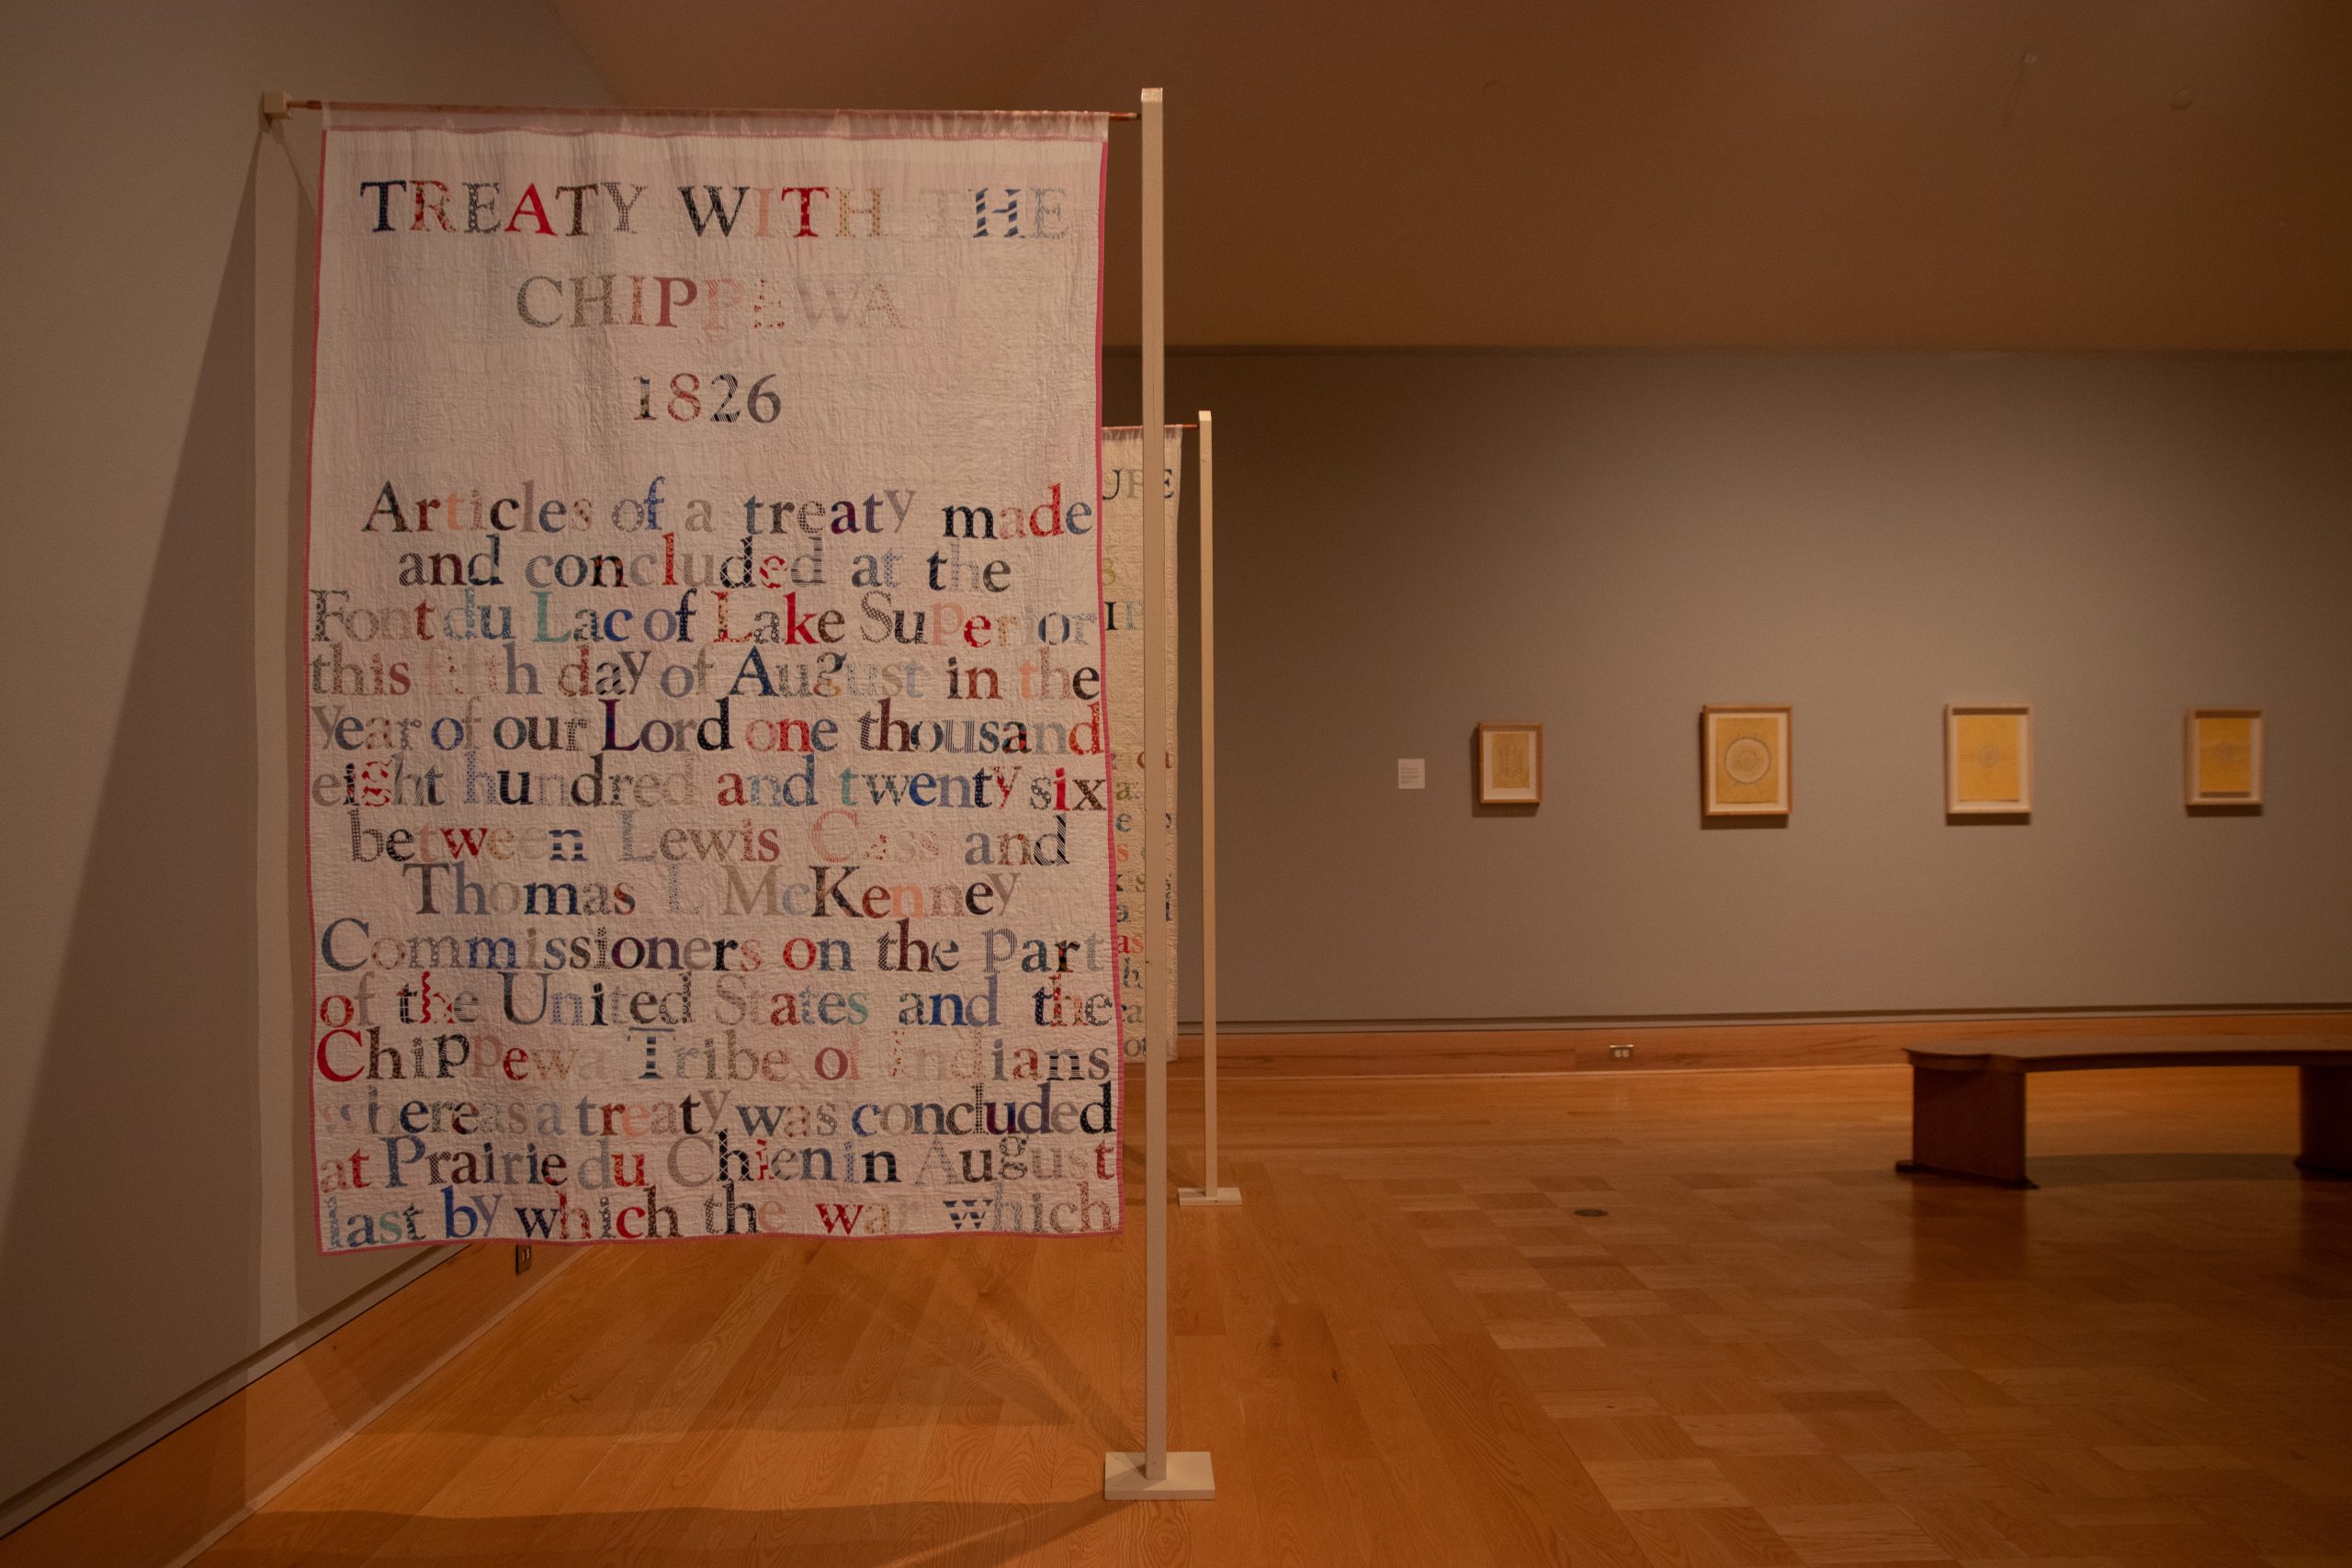 TREATY WITH THE
CHIPPEWA
1826
Articles of a treaty made
and concluded at the
Font du Lac of Lake Superior
this fifth day of August in the
year of our Lord one thousand
eight hundred and twenty six
between Lewis Cass and
Thomas L McKenney
Commissioners on the part
of the United States and the
Chippewa Tribe of Indians
whereas a treaty was concluded
at Prairie du Chien in August
last by which the war which